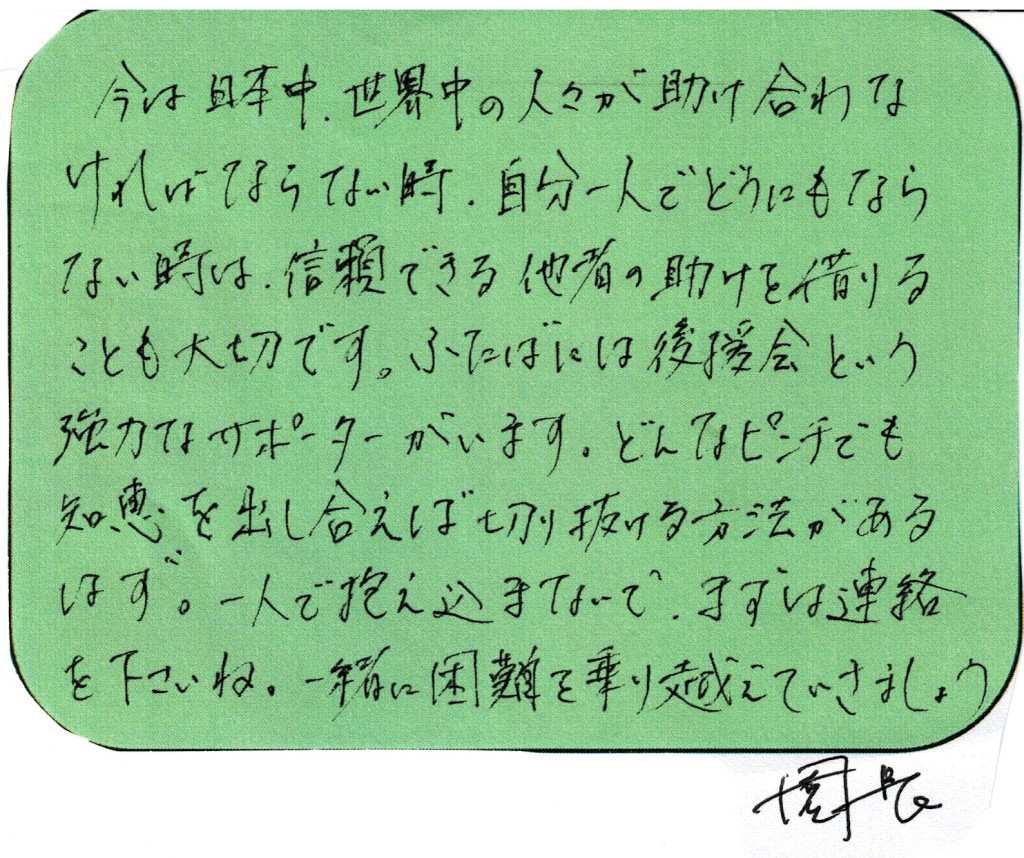 今は日本中、世界中の人々が助け合わな
ければならない時、自分一人でどうにもなら
ない時は、信頼できる他者の助けを借りる
ことも大切です。ふたばには後援会という
強力なサポーターがいます。どんなピンチでも
知恵を出し合えば切り抜ける方法がある
はず。一人で抱え込まないで、まずは連絡
を下さいね。一緒に困難を乗り越えていきましょう
園長